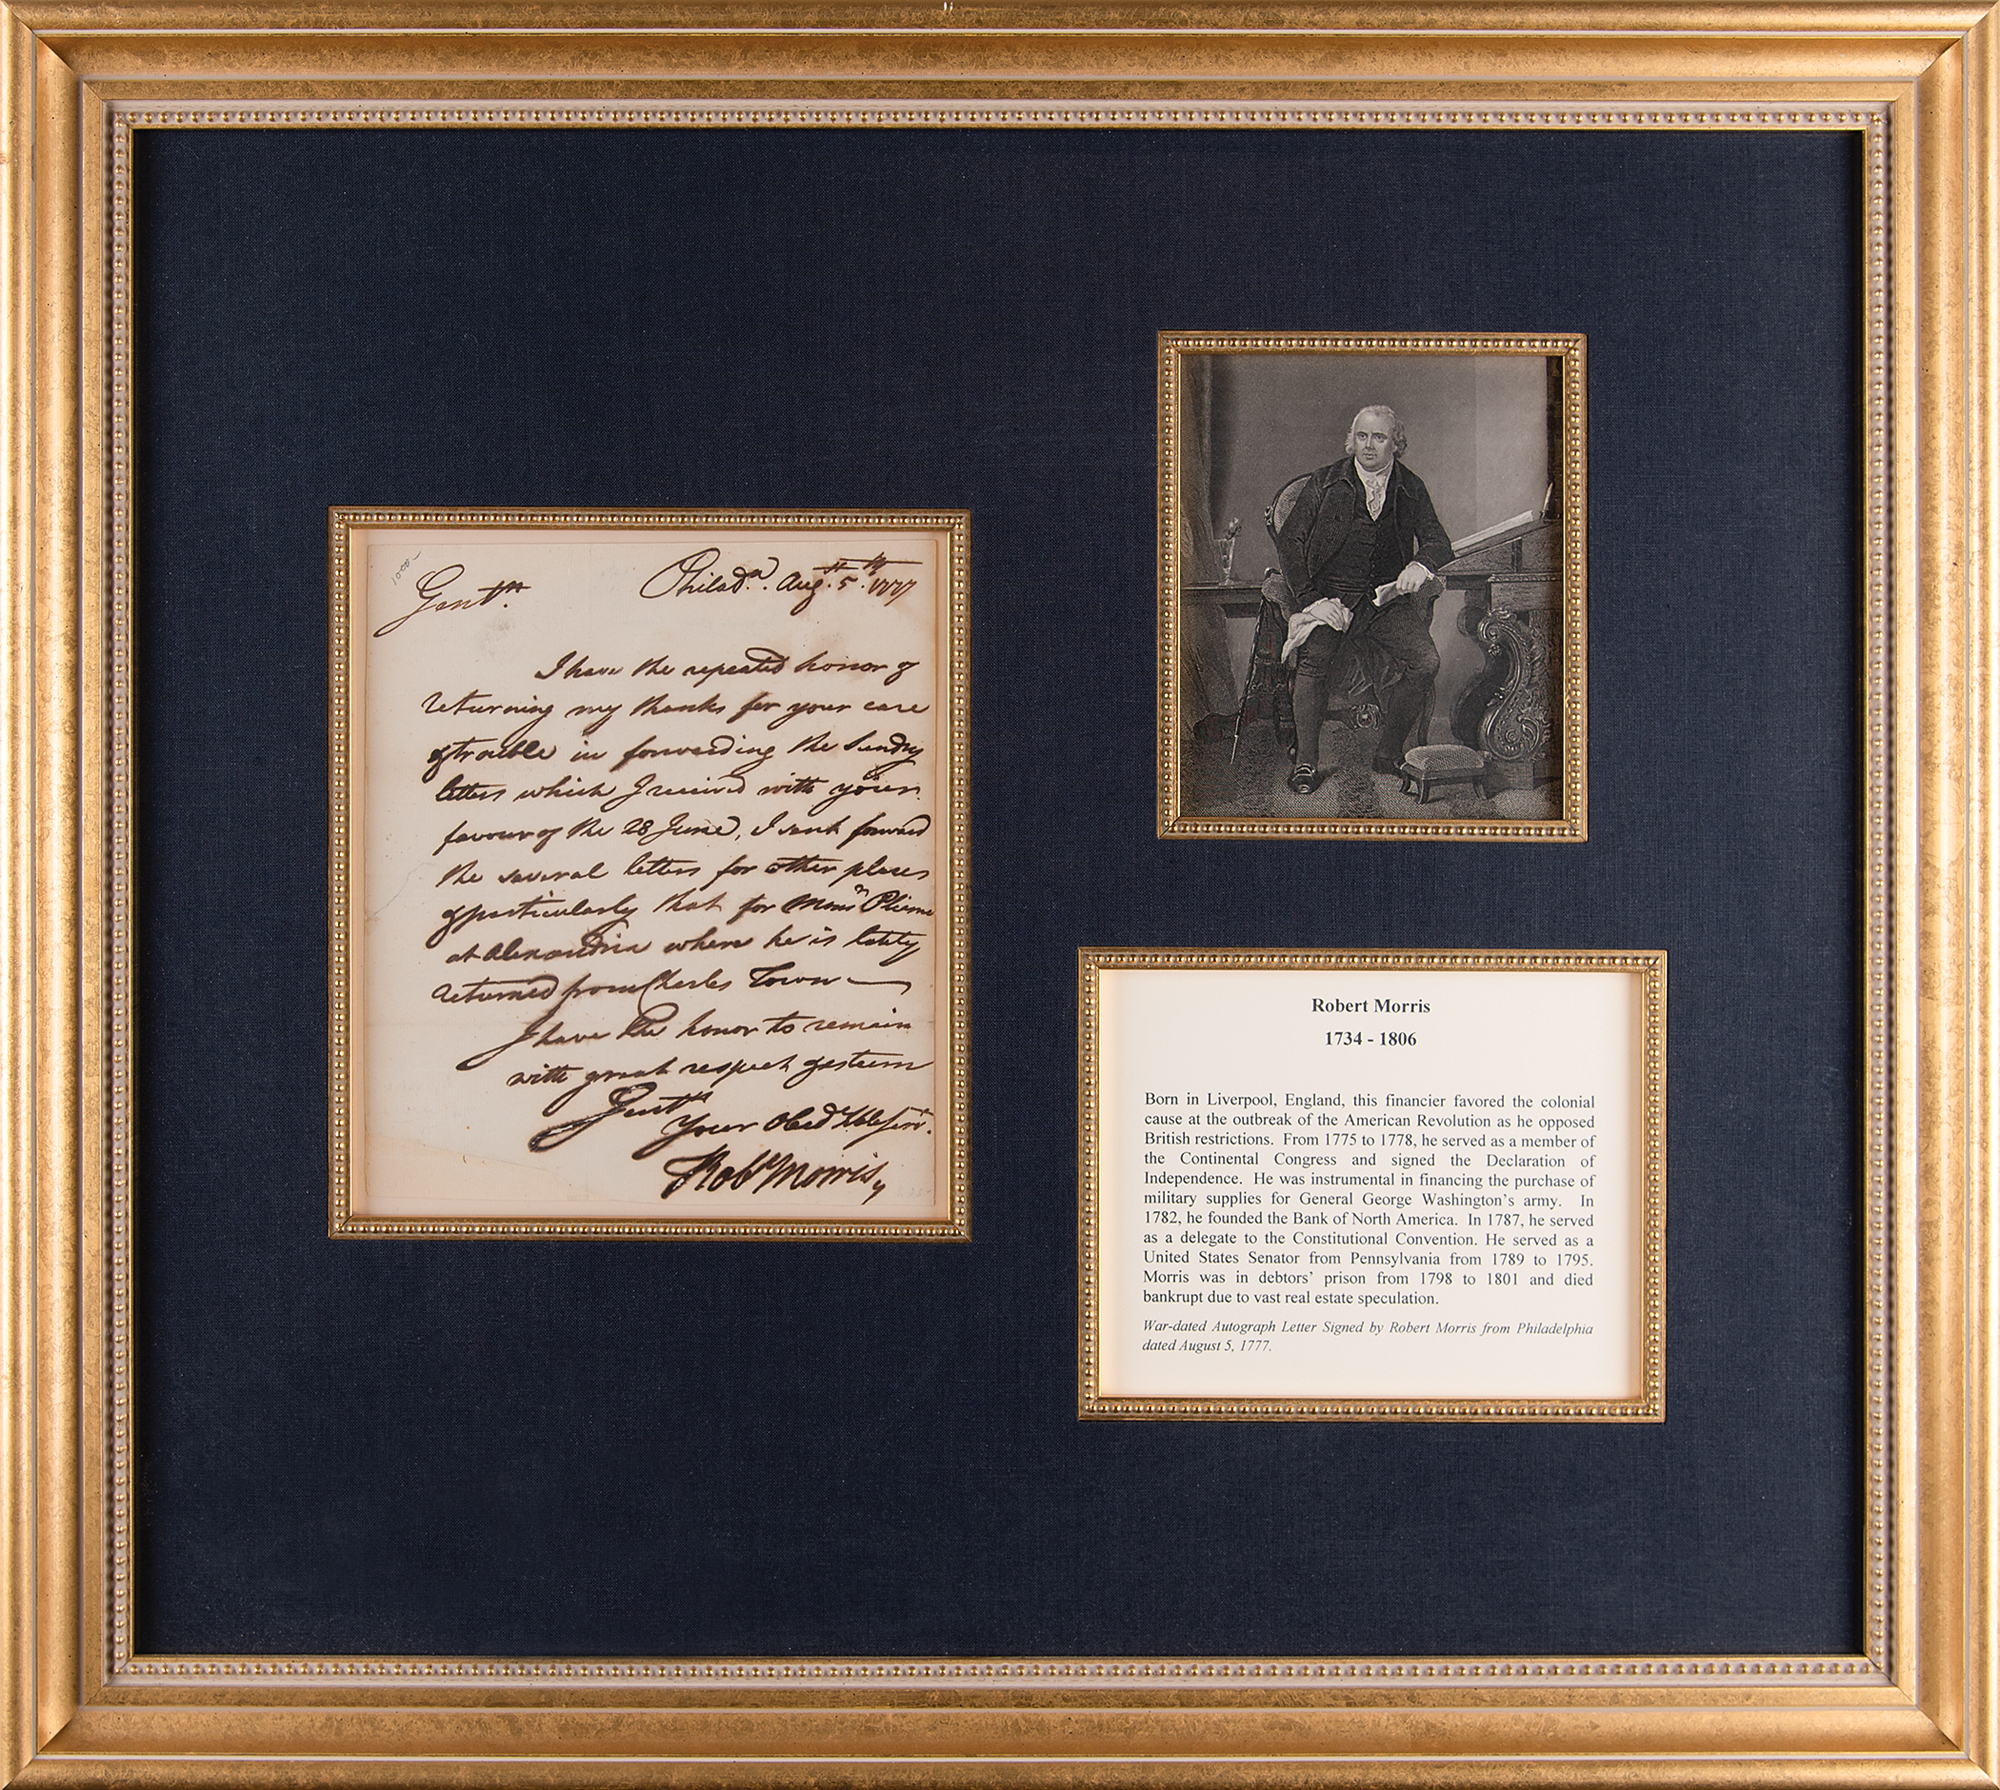 1000-
Gentn.
Philada. Augst. 5th. 1777
I have the repeated honor of
returning my thanks for your care
& trouble in forwarding the sundry
letters which I received with your
favour of the 28 June, I sent forward
the several letters for other places
& particularly that for Monsr
at Alexandria where he is lately
returned from Charles Town —
I have the honor to remain
with great respect & esteem
Gentn
Your Obed Hble servt.
Robt Morris
Robert Morris
1734 - 1806
Born in Liverpool, England, this financier favored the colonial
cause at the outbreak of the American Revolution as he opposed
British restrictions. From 1775 to 1778, he served as a member of
the Continental Congress and signed the Declaration of
Independence. He was instrumental in financing the purchase of
military supplies for General George Washington's army. In
1782, he founded the Bank of North America. In 1787, he served
as a delegate to the Constitutional Convention. He served as a
United States Senator from Pennsylvania from 1789 to 1795.
Morris was in debtors' prison from 1798 to 1801 and died
bankrupt due to vast real estate speculation.
War-dated Autograph Letter Signed by Robert Morris from Philadelphia
dated August 5, 1777.